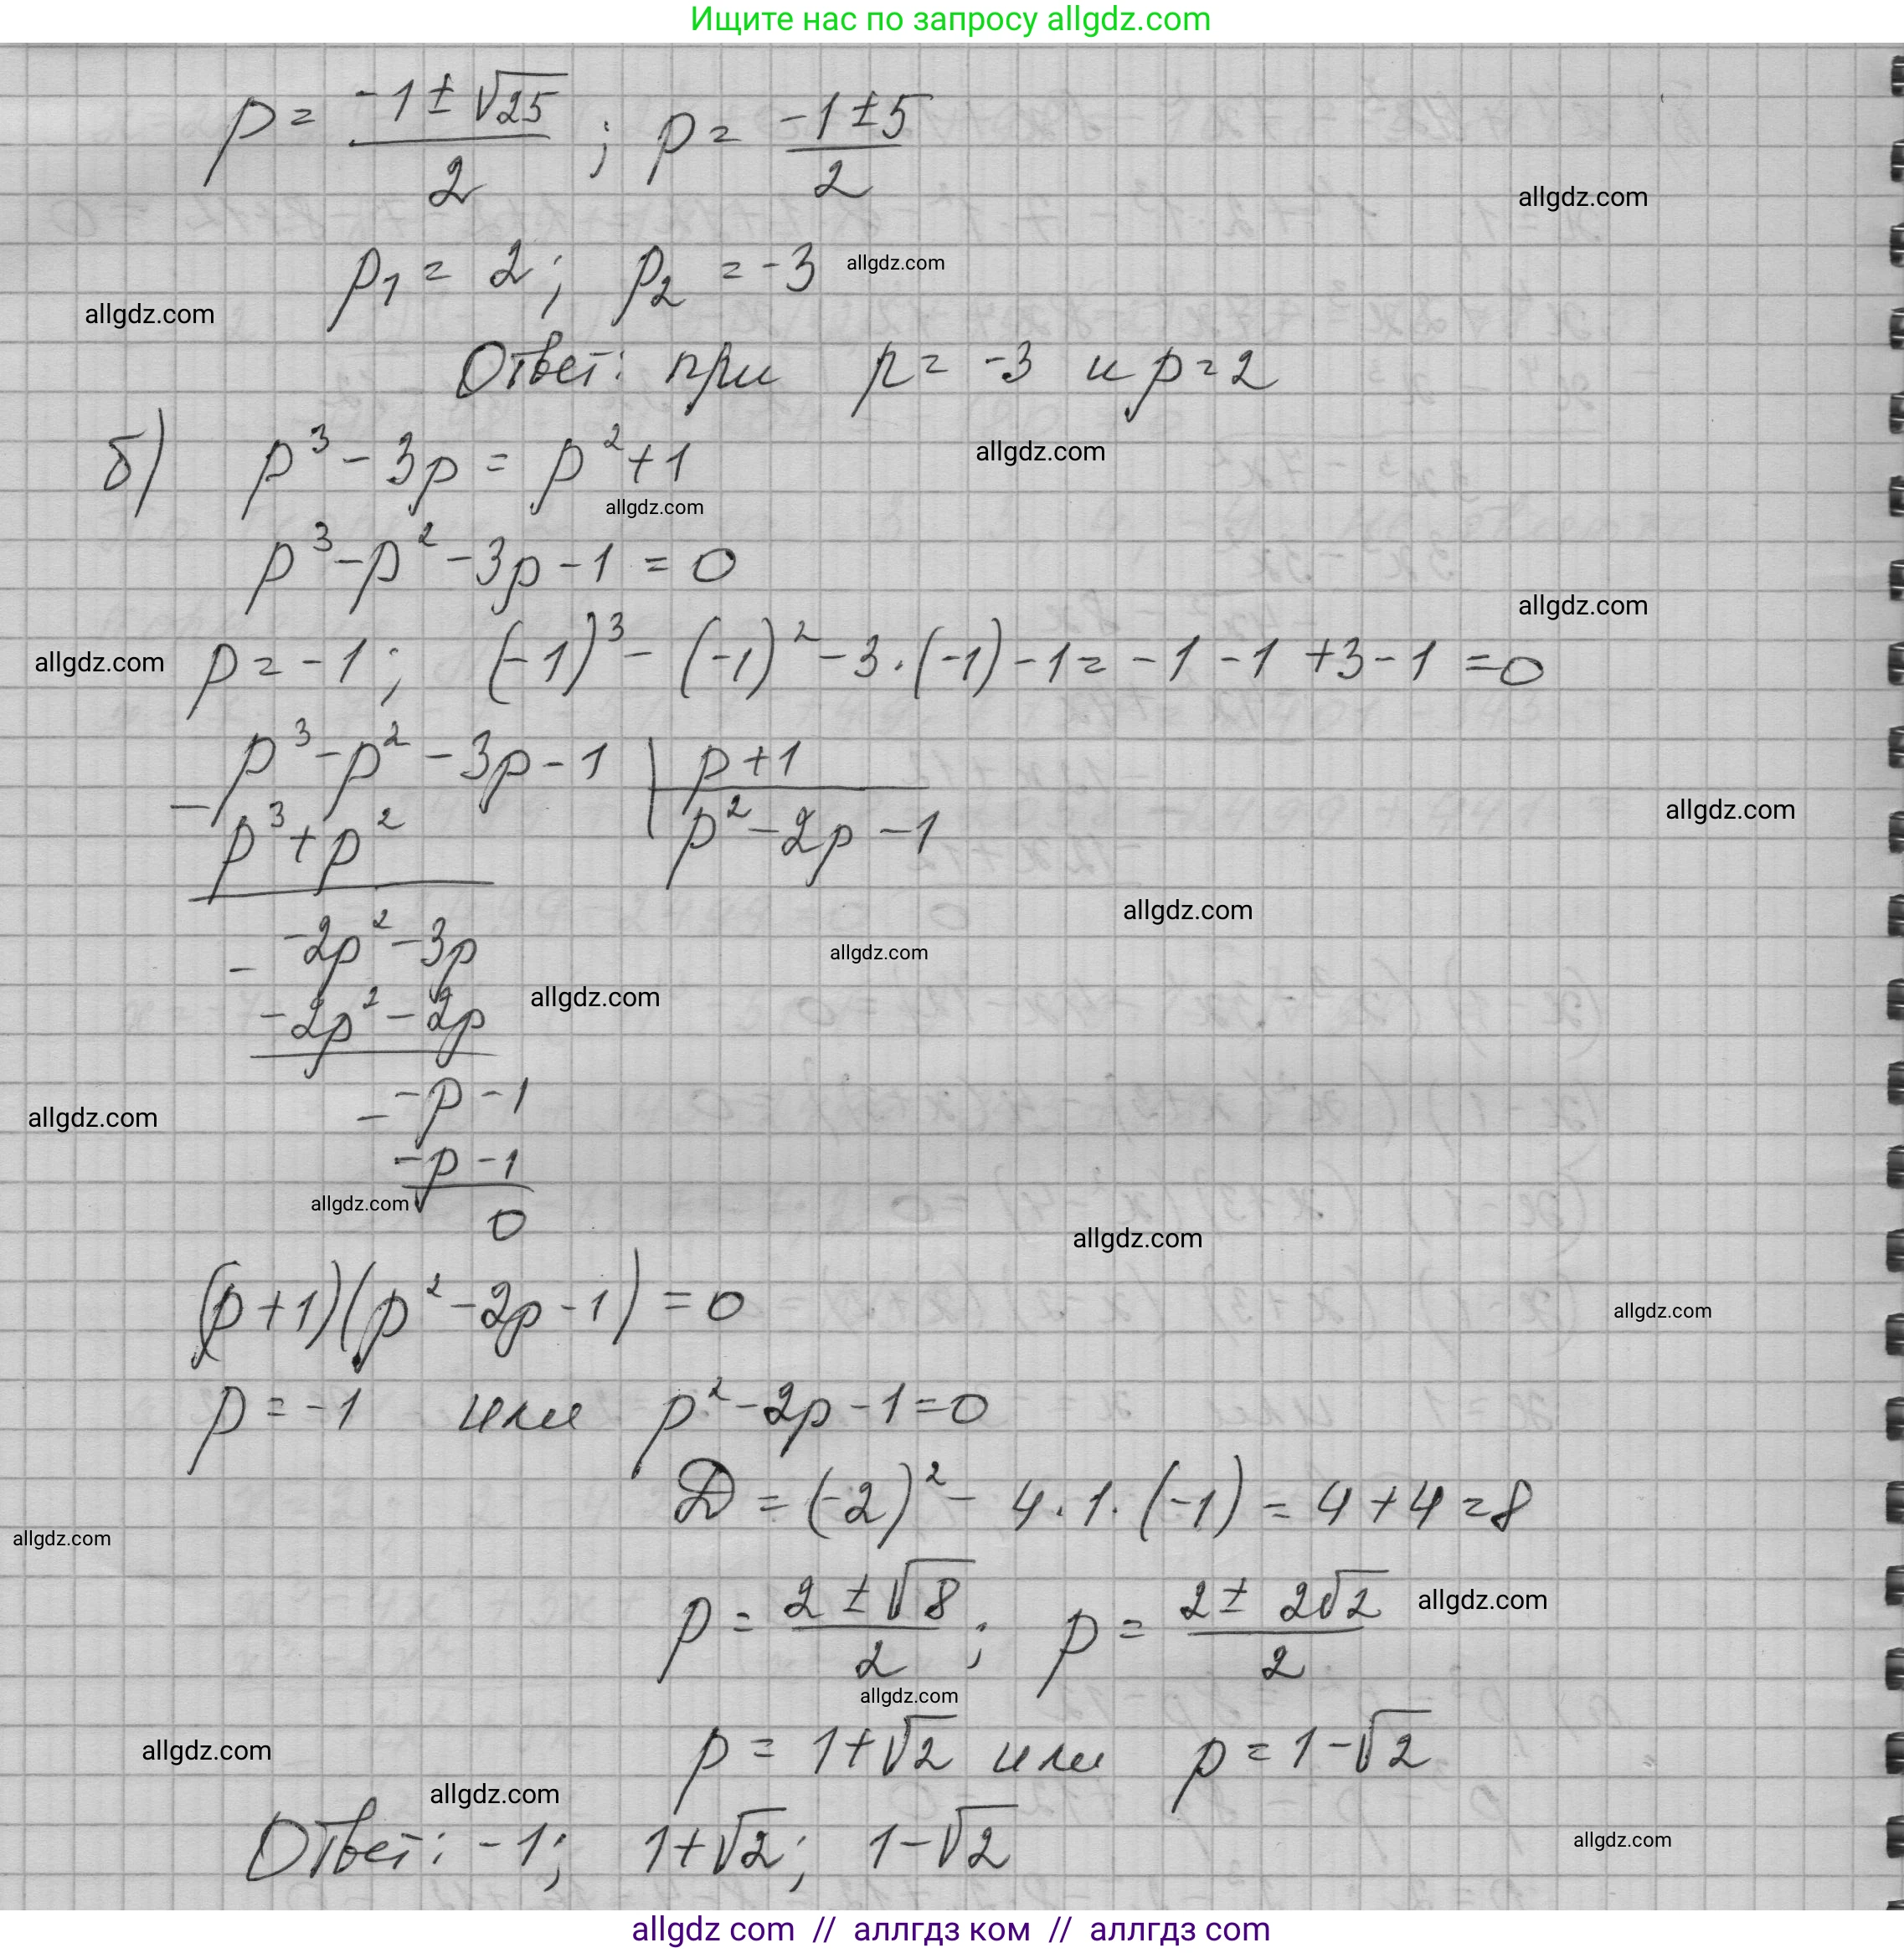 Ищите нас по запросу allgdz.com
p = (-1 ± √25)/2 ; p = (-1 ± 5)/2
allgdz.com
p₁ = 2; p₂ = -3 allgdz.com
allgdz.com
Ответ: при p = -3 и p = 2
б) p³ - 3p = p² + 1
allgdz.com
allgdz.com
p³ - p² - 3p - 1 = 0
allgdz.com
allgdz.com
p = -1; (-1)³ - (-1)² - 3·(-1) - 1 = -1 - 1 + 3 - 1 = 0
p³ - p² - 3p - 1 | p + 1
allgdz.com
- p³ + p² | p² - 2p - 1
allgdz.com
- -2p² - 3p
allgdz.com
-2p² - 2p
allgdz.com
- -p - 1
allgdz.com
-p - 1
allgdz.com
0
allgdz.com
(p + 1)(p² - 2p - 1) = 0
allgdz.com
p = -1 или p² - 2p - 1 = 0
D = (-2)² - 4·1·(-1) = 4 + 4 = 8
allgdz.com
p = (2 ± √8)/2 ; p = (2 ± 2√2)/2
allgdz.com
allgdz.com
p = 1 + √2 или p = 1 - √2
allgdz.com
allgdz.com
Ответ: -1; 1 + √2; 1 - √2
allgdz.com
allgdz com // аллгдз ком // аллгдз com